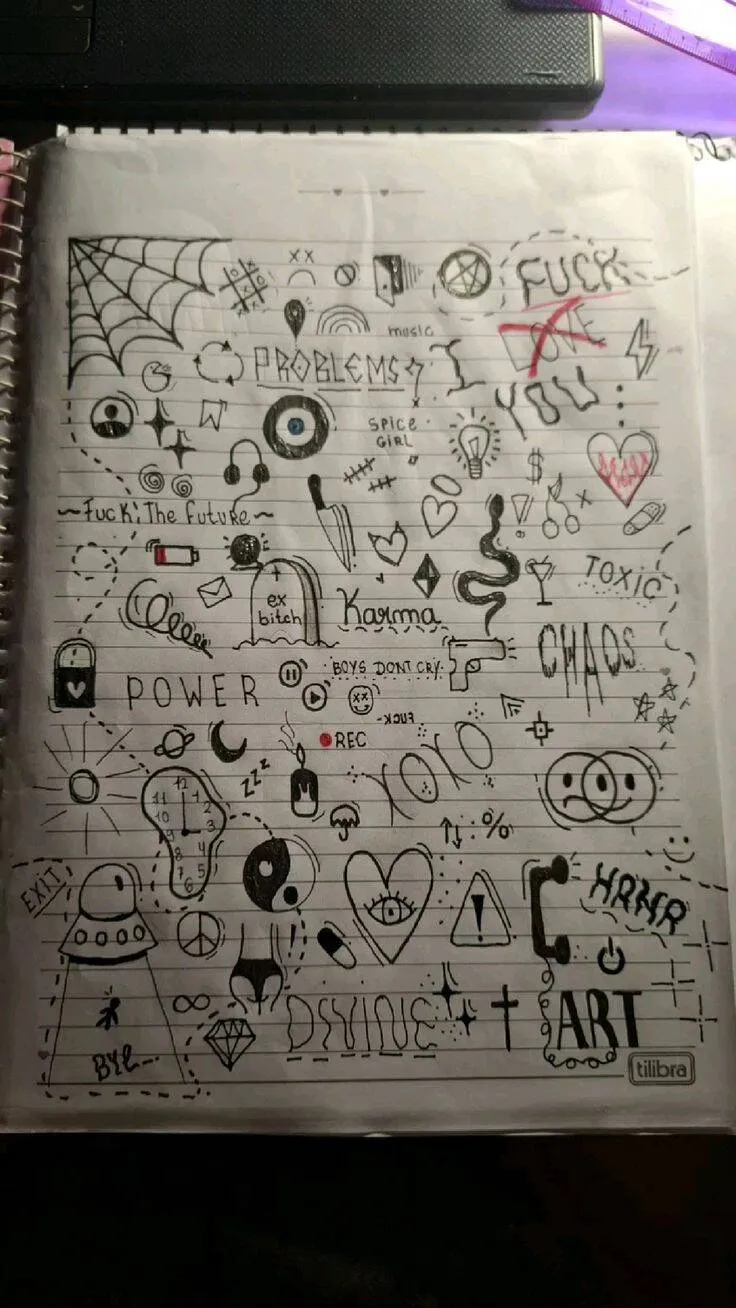 FUCK
music
LOVE
PROBLEMS
I
YOU
SPICE
GIRL
$
~Fuck: The Future~
TOXIC
ex
bitch
Karma
CHAOS
BOYS DONT CRY
POWER
FUCK
REC
XOXO
zzz
12
11 1
10 2
9 3
8 4
7 5
6
%
EXIT
HAHA
DIVINE
ART
BYE...
tilibra